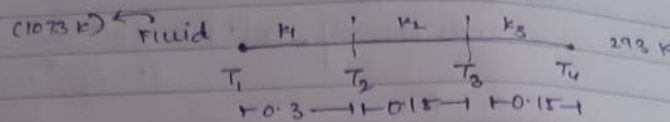 (1073 K) Fluid K1 K2 K3 293 K
T1 T2 T3 T4
0.3 0.15 0.15